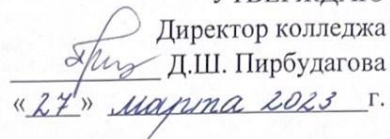 Директор колледжа
Д.Ш. Пирбудагова
«27» марта 2023 г.